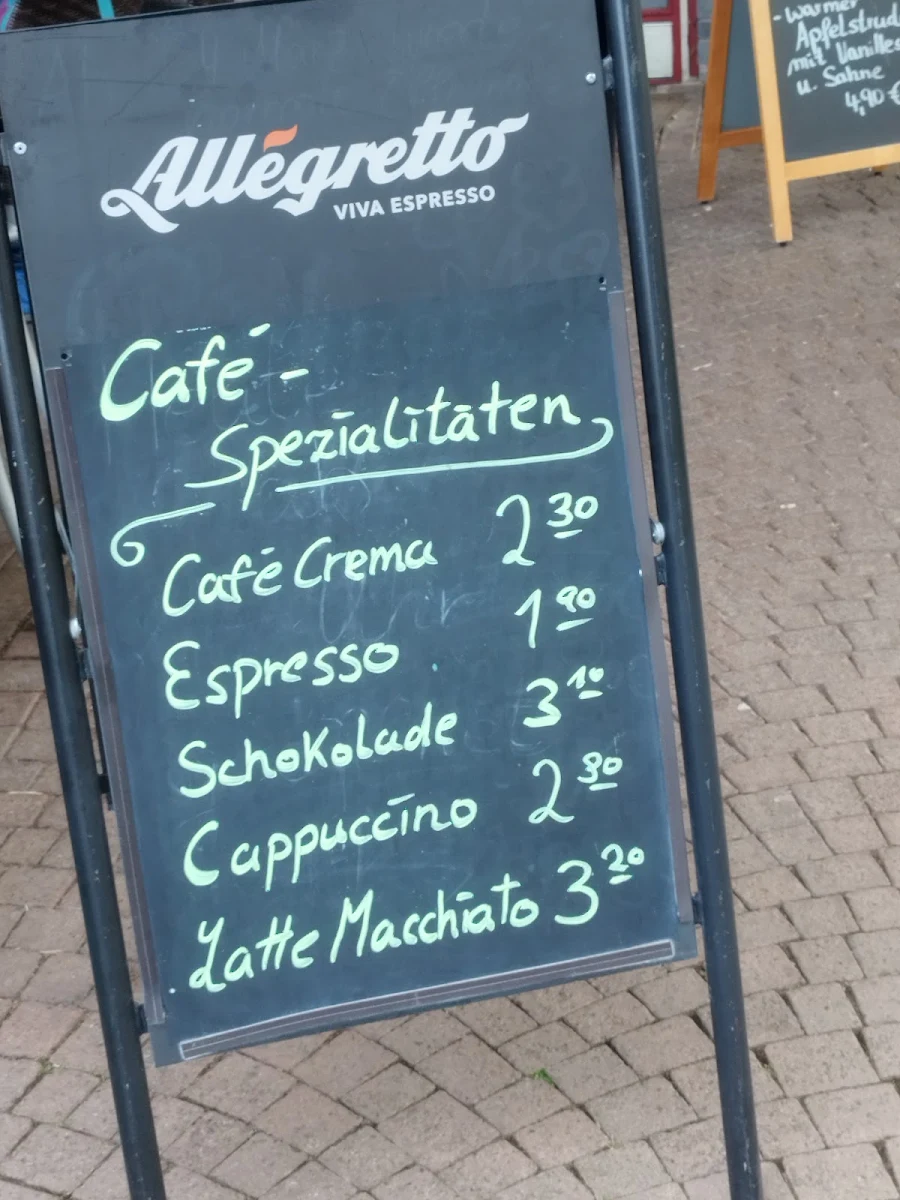 Allégretto
VIVA ESPRESSO
Café-
Spezialitäten
Café Crema 2 30
Espresso 1 90
Schokolade 3 10
Cappuccino 2 90
Latte Macchiato 3 20
- warmer
Apfelstrud
mit Vanilles
u. Sahne
4,90 €